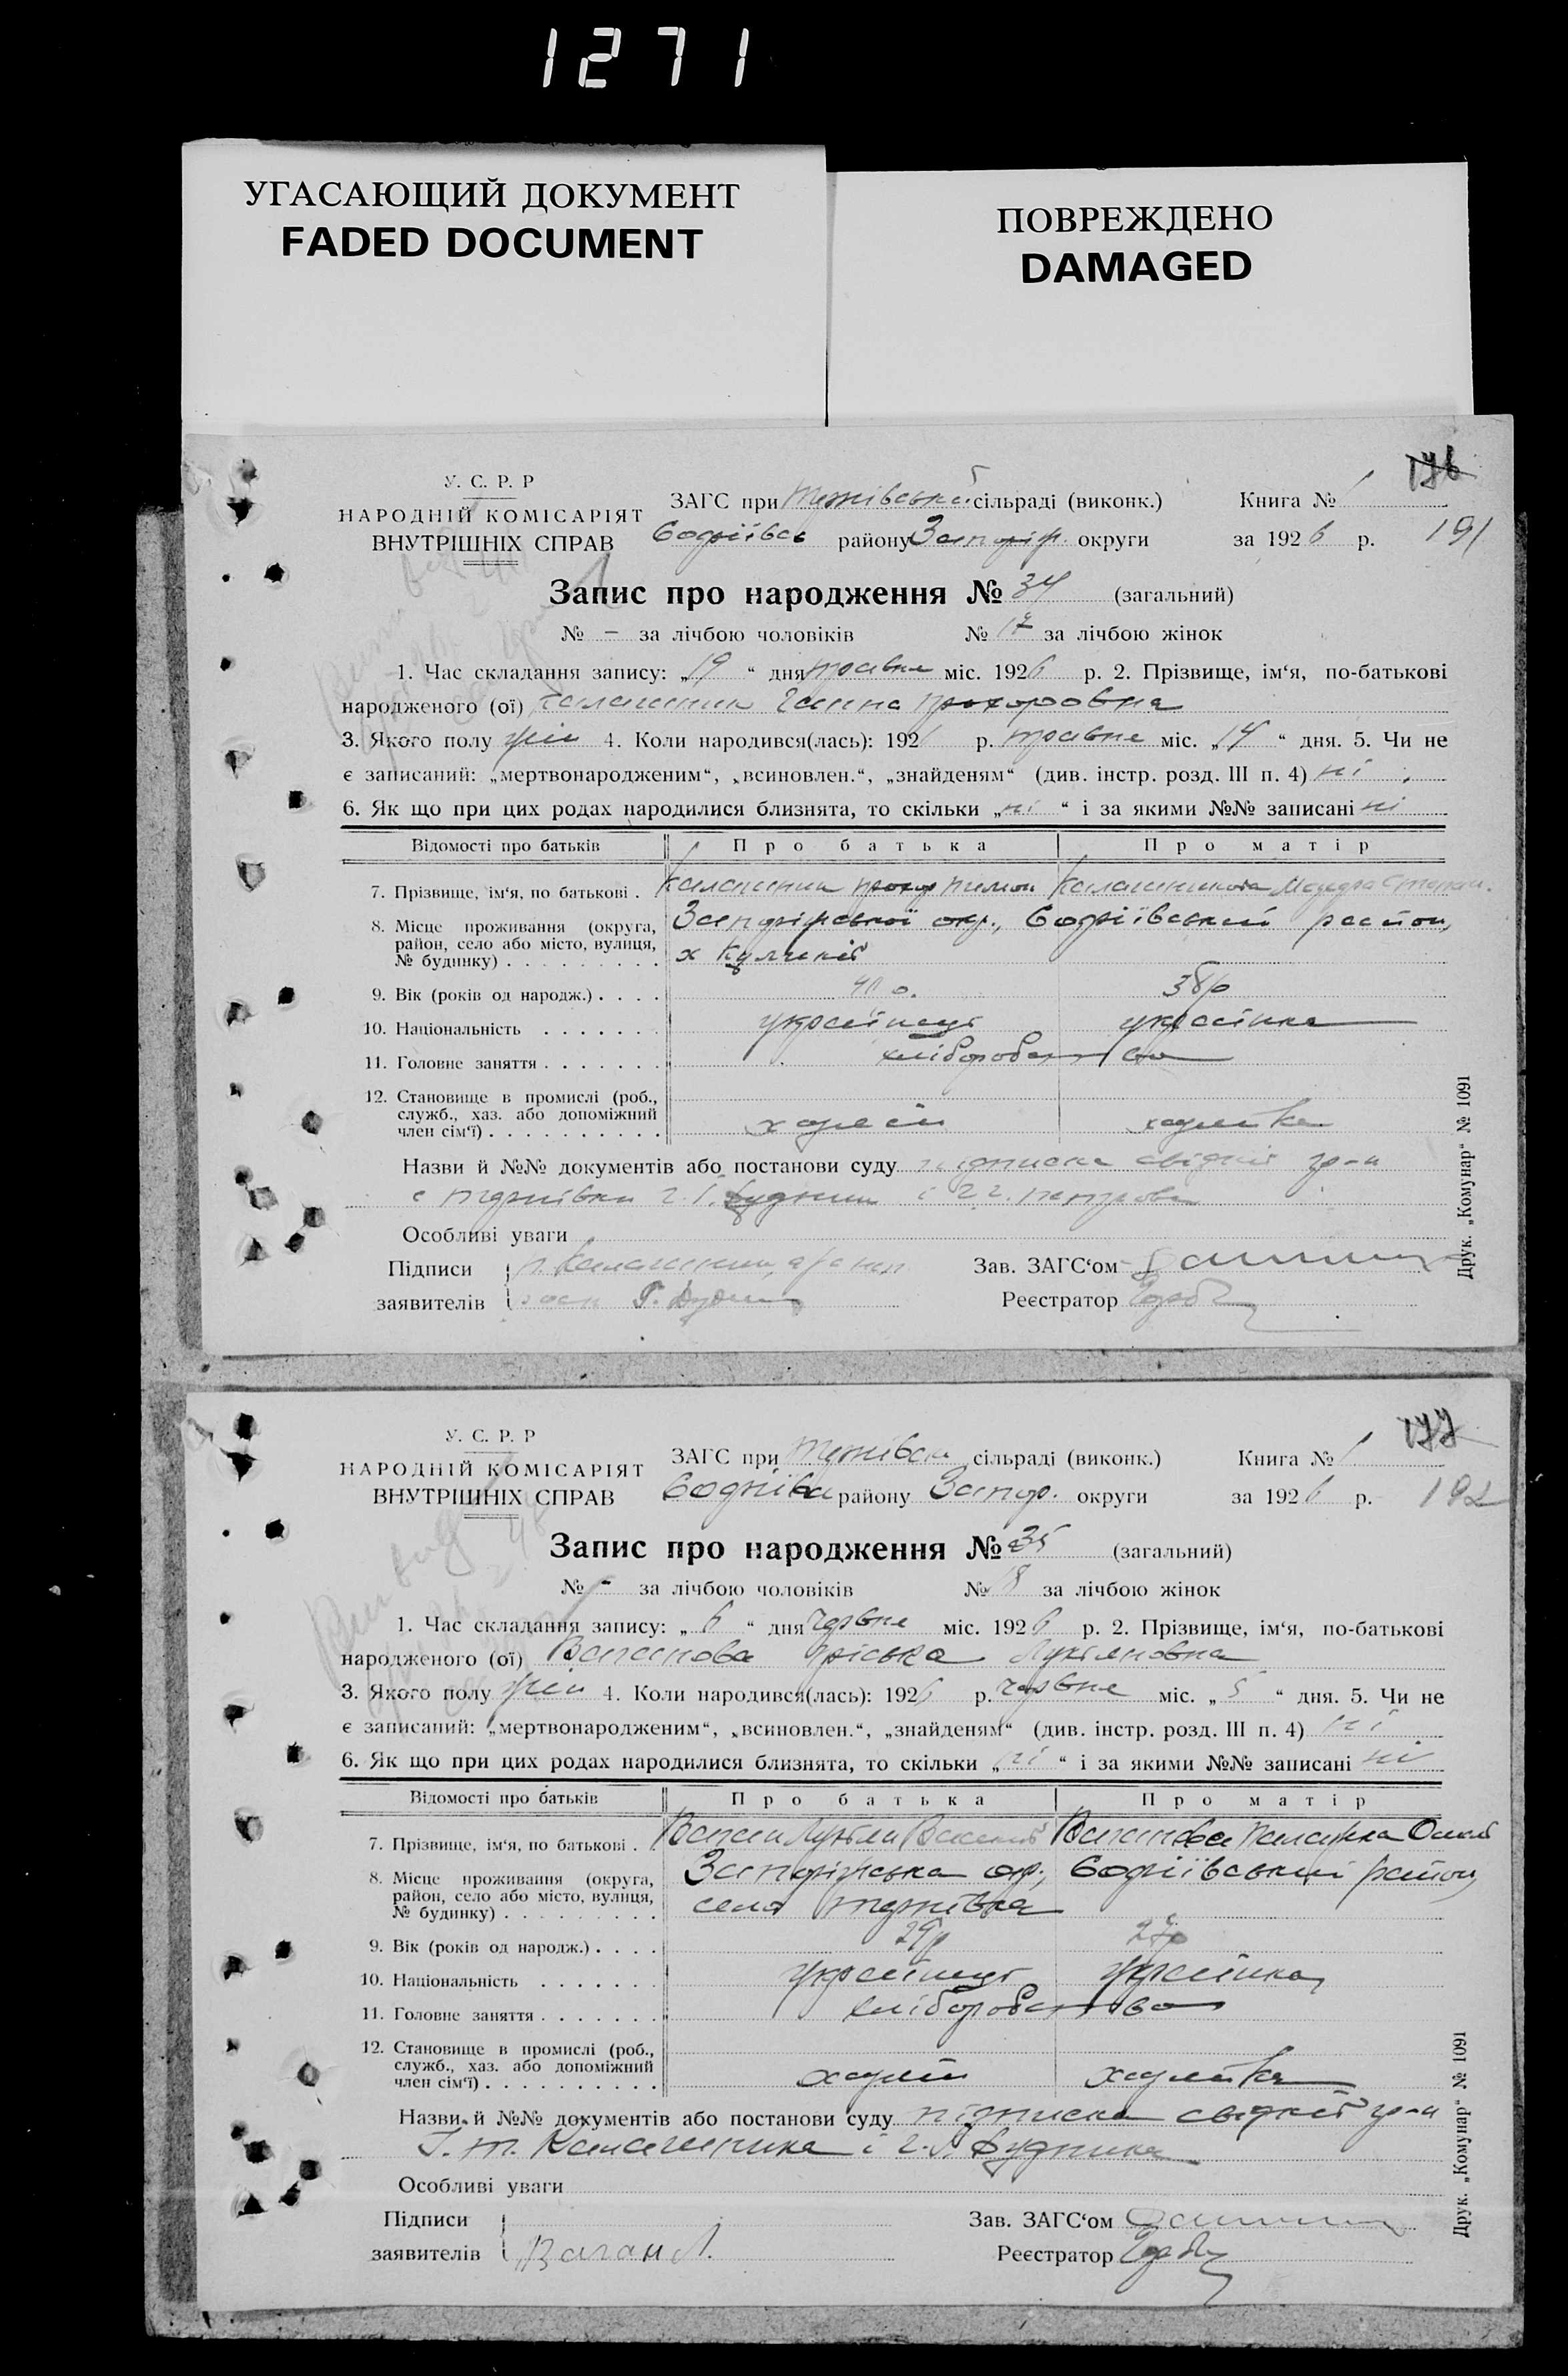 1271
УГАСАЮЩИЙ ДОКУМЕНТ
FADED DOCUMENT
ПОВРЕЖДЕНО
DAMAGED
176
У. С. Р. Р
НАРОДНІЙ КОМІСАРІЯТ
ВНУТРІШНІХ СПРАВ
ЗАГС при сільраді (виконк.) Книга № 1
району Запоріж. округи за 1926 р. 191
Запис про народження № 34 (загальний)
№ – за лічбою чоловіків № 17 за лічбою жінок
1. Час складання запису: „19“ дня травня міс. 1926 р. 2. Прізвище, ім‘я, по-батькові
народженого (ої) Калашник Ганна Прохоровна
3. Якого полу жін 4. Коли народився(лась): 1926 р. травня міс. „14“ дня. 5. Чи не
є записаний: „мертвонародженим“, „всиновлен.“, „знайденям“ (див. інстр. розд. III п. 4) ні
6. Як що при цих родах народилися близнята, то скільки „ні“ і за якими №№ записані ні
Відомості про батьків Про батька Про матір
7. Прізвище, ім‘я, по батькові . Калашник Прохор Пимон Калашникова
8. Місце проживання (округа, Запоріжської окр., Софіївський район,
район, село або місто, вулиця,
№ будинку) . . . . . . . . . х
9. Вік (років од народж.) . . . . 40 р. 38 р
10. Національність . . . . . . . українець українка
11. Головне заняття . . . . . . . хліборобство
12. Становище в промислі (роб.,
служб., хаз. або допоміжний
член сім‘ї) . . . . . . . . . . хазяїн хазяйка
Назви й №№ документів або постанови суду підписка свідків гр-н
с Тернівки Г. І. Будник і
Особливі уваги
Підписи Калашник Зав. ЗАГС‘ом
заявителів Реєстратор
Друк. „Комунар“ № 1091
177
У. С. Р. Р
НАРОДНІЙ КОМІСАРІЯТ
ВНУТРІШНІХ СПРАВ
ЗАГС при сільраді (виконк.) Книга № 1
району Запор. округи за 1926 р. 192
Запис про народження № 35 (загальний)
№ - за лічбою чоловіків № 18 за лічбою жінок
1. Час складання запису: „6“ дня червня міс. 1926 р. 2. Прізвище, ім‘я, по-батькові
народженого (ої) Ваганова Пріська Лукіяновна
3. Якого полу жін 4. Коли народився(лась): 1926 р. червня міс. „5“ дня. 5. Чи не
є записаний: „мертвонародженим“, „всиновлен.“, „знайденям“ (див. інстр. розд. III п. 4) ні
6. Як що при цих родах народилися близнята, то скільки „ні“ і за якими №№ записані ні
Відомості про батьків Про батька Про матір
7. Прізвище, ім‘я, по батькові . . Ваган Лукіян Ваганова Палажка
8. Місце проживання (округа, Запоріжська окр., Софіївський район,
район, село або місто, вулиця,
№ будинку) . . . . . . . . . село Тернівка
9. Вік (років од народж.) . . . . 29 р 27 р
10. Національність . . . . . . . українець українка
11. Головне заняття . . . . . . . хліборобство
12. Становище в промислі (роб.,
служб., хаз. або допоміжний
член сім‘ї) . . . . . . . . . . хазяїн хазяйка
Назви й №№ документів або постанови суду підписка свідків гр-н
Калашника і Будника
Особливі уваги
Підписи Зав. ЗАГС‘ом
заявителів Ваган Л. Реєстратор
Друк. „Комунар“ № 1091